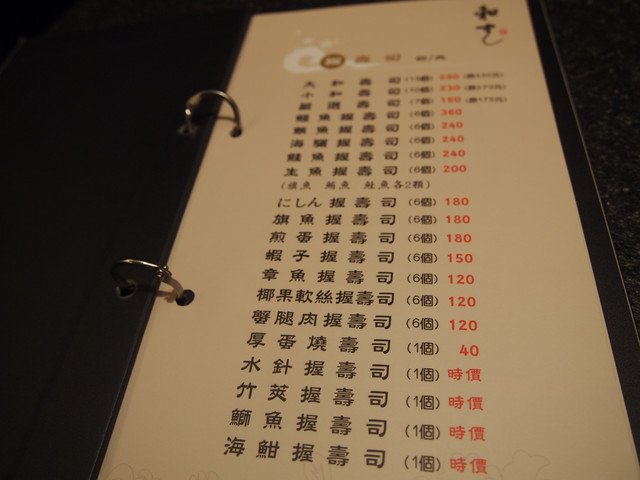 壽司
大和壽司 (13個)
小和壽司 (10個) 230
嚴選壽司 (7個)
鰻魚握壽司 (6個) 360
鯛魚握壽司 (6個) 240
海膽握壽司 (6個) 240
鮭魚握壽司 (6個) 240
生魚握壽司 (6個) 200
(旗魚 鮪魚 鮭魚各2顆)
にしん握壽司 (6個) 180
旗魚握壽司 (6個) 180
煎蛋握壽司 (6個) 180
蝦子握壽司 (6個) 150
章魚握壽司 (6個) 120
椰果軟絲握壽司 (6個) 120
蟹腿肉握壽司 (6個) 120
厚蛋燒壽司 (1個) 40
水針握壽司 (1個) 時價
竹莢握壽司 (1個) 時價
鰤魚握壽司 (1個) 時價
海魽握壽司 (1個) 時價